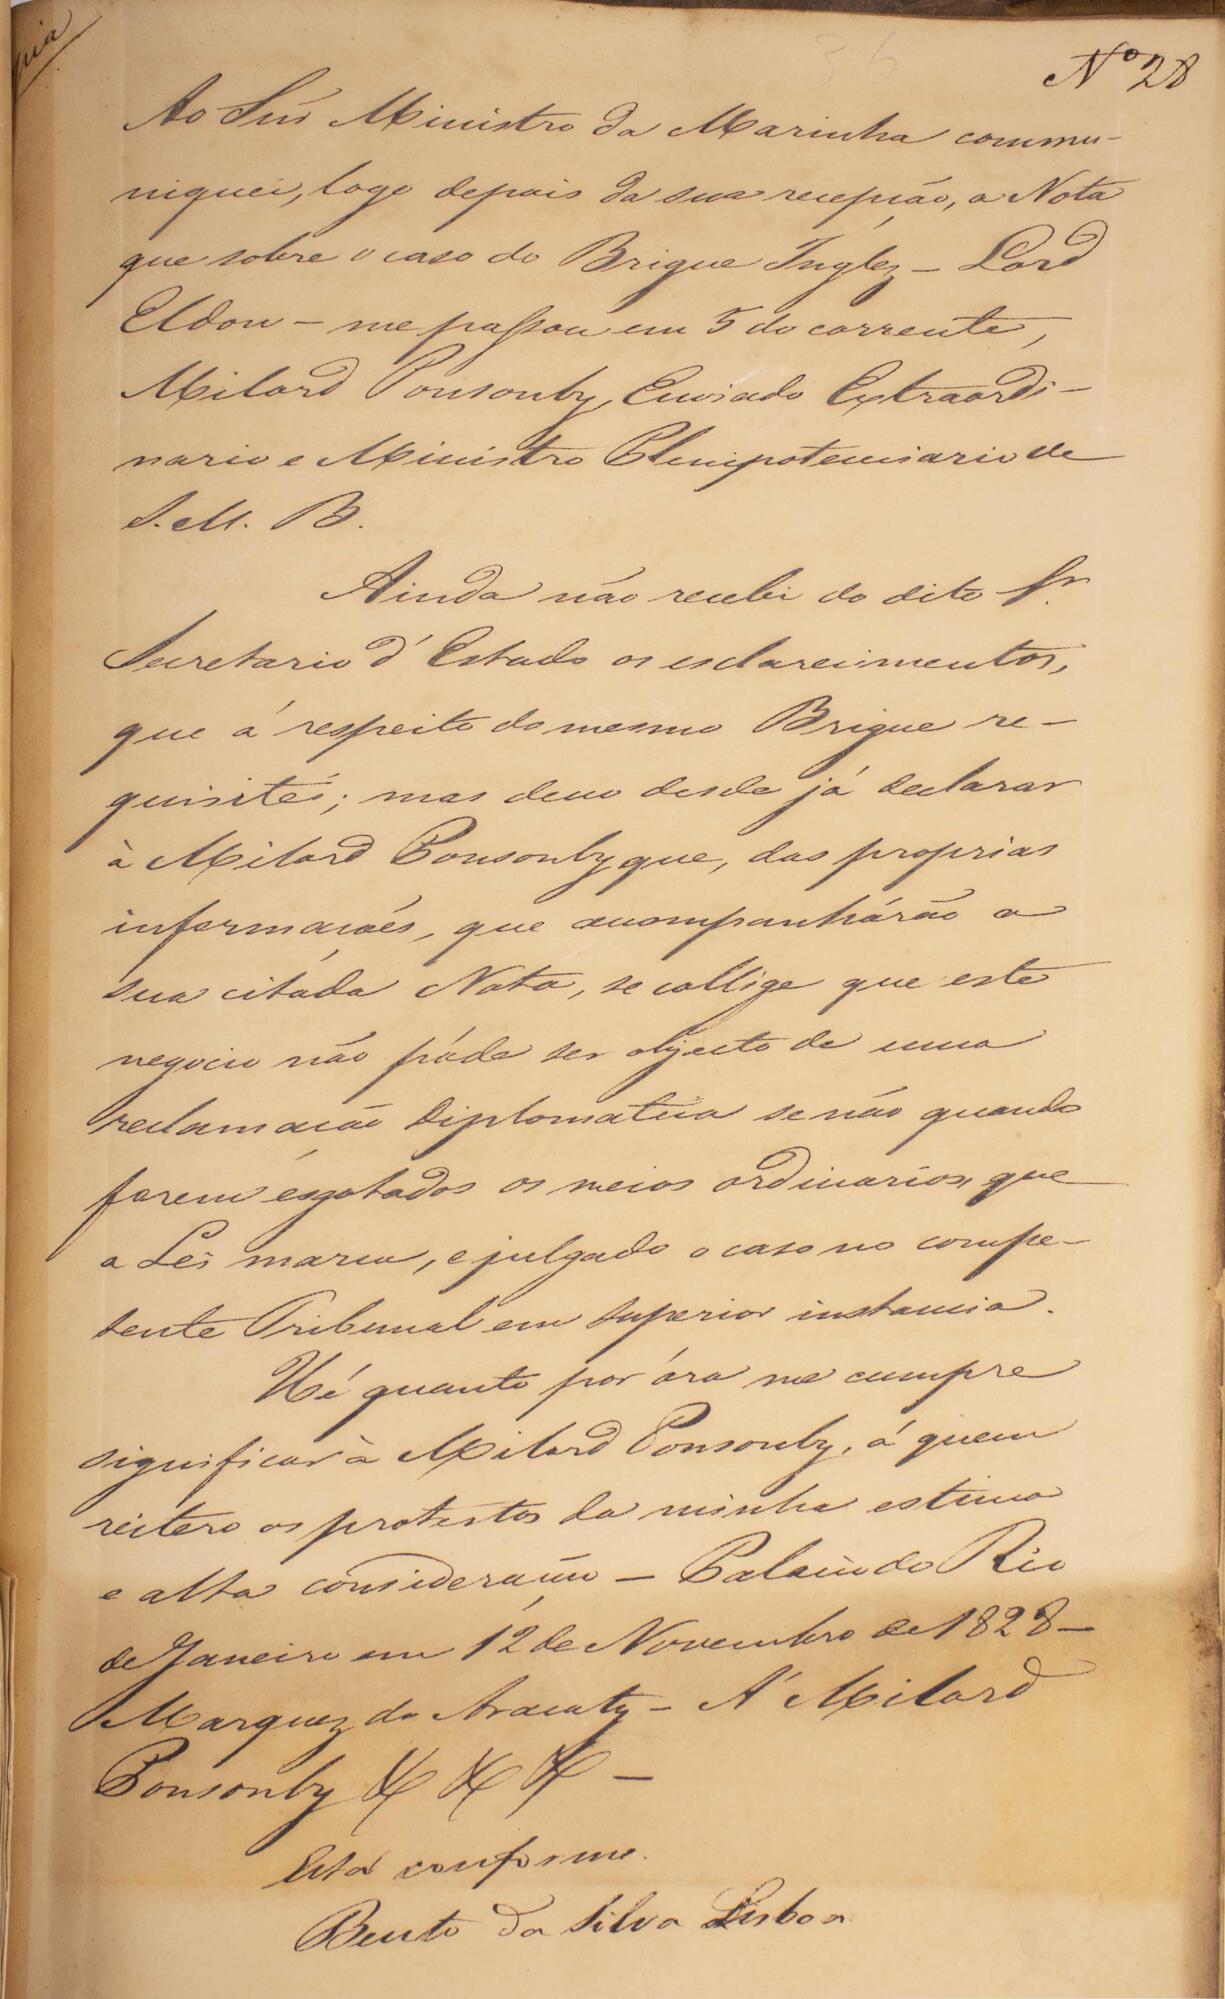 Nº 28
36
Ao Snr Ministro da Marinha commu-
niquei, logo depois da sua recepção, a Nota
que sobre o caso do Brigue Inglez – Lord
Eldon – me passou em 5 do corrente,
Milord Ponsonby, Enviado Extraordi-
nario e Ministro Plenipotenciario de
S. M. B.
Ainda não recebi do dito Sr.
Secretario d'Estado os esclarecimentos,
que á respeito do mesmo Brigue re-
quisitei; mas devo desde já declarar
à Milord Ponsonby que, das proprias
informações, que acompanhárão a
sua citada Nota, se collige que este
negocio não póde ser objecto de uma
reclamação diplomatica se não quando
forem esgotados os meios ordinarios, que
a Lei marca, e julgado o caso no compe-
tente Tribunal em superior instancia.
Hé quanto por óra me cumpre
significar à Milord Ponsonby, á quem
reitero os protestos da minha estima
e alta consideração – Palacio do Rio
de Janeiro em 12 de Novembro de 1828 –
Marquez do Aracaty – A' Milord
Ponsonby
Está conforme.
Bento da Silva Lisboa